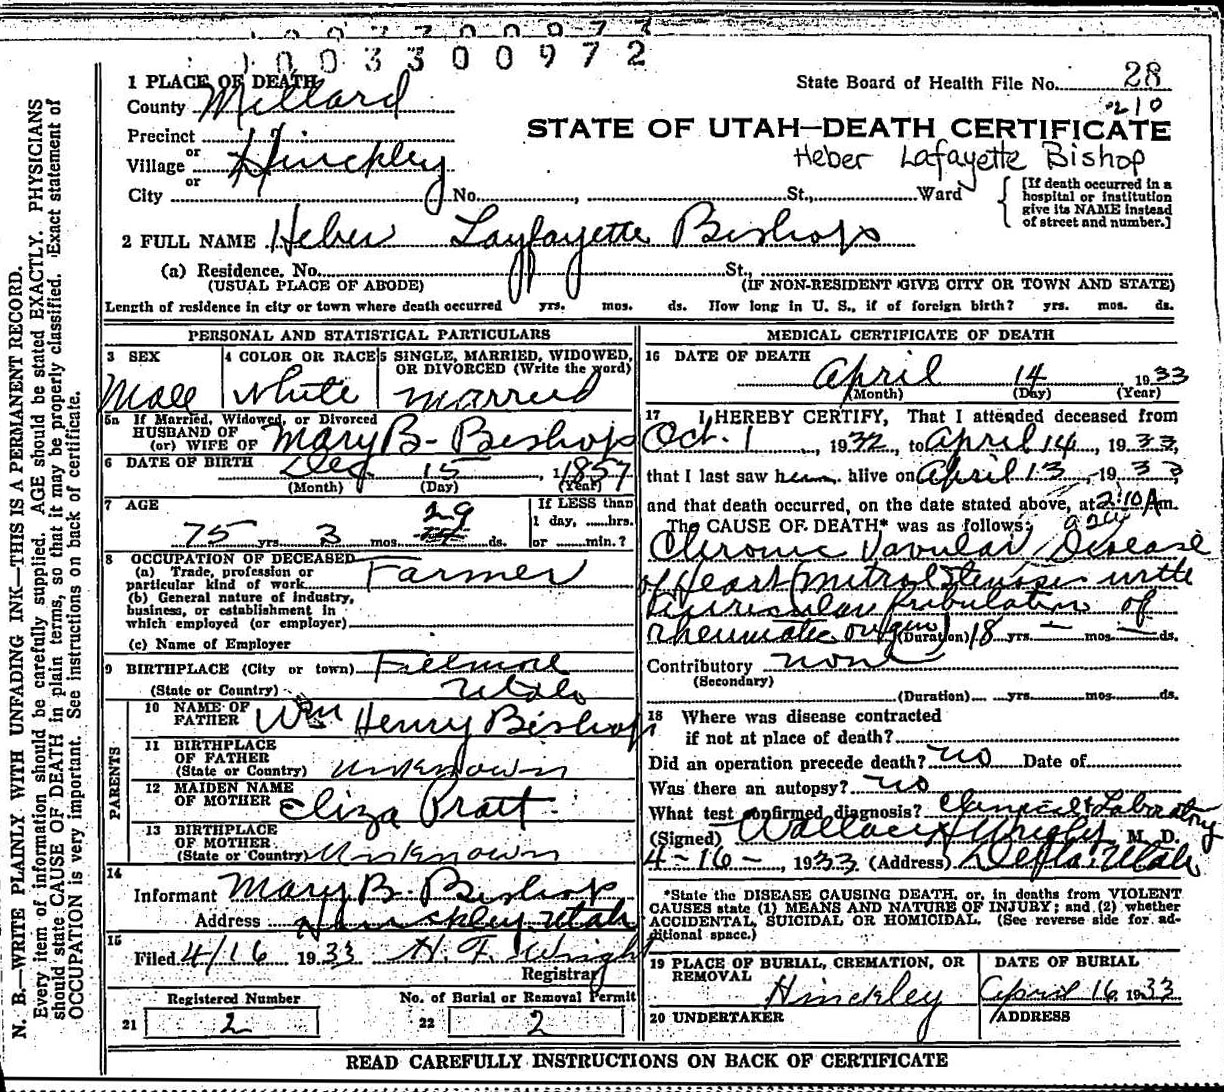 1003300972
1 PLACE OF DEATH
State Board of Health File No. 28
County Millard
210
Precinct
STATE OF UTAH—DEATH CERTIFICATE
or
Village Hinckley
Heber Lafayette Bishop
or
City No. , St., Ward
[If death occurred in a
hospital or institution
give its NAME instead
of street and number.]
2 FULL NAME Heber Layfayette Bishop
(a) Residence, No. St.,
(USUAL PLACE OF ABODE) (IF NON-RESIDENT GIVE CITY OR TOWN AND STATE)
Length of residence in city or town where death occurred yrs. mos. ds. How long in U. S., if of foreign birth? yrs. mos. ds.
PERSONAL AND STATISTICAL PARTICULARS
3 SEX 4 COLOR OR RACE 5 SINGLE, MARRIED, WIDOWED,
OR DIVORCED (Write the word)
Male White Married
5a If Married, Widowed, or Divorced
HUSBAND OF
(or) WIFE OF Mary B. Bishop
6 DATE OF BIRTH Dec 15, 1857
(Month) (Day) (Year)
7 AGE
If LESS than
1 day, hrs.
or min.?
75 yrs. 3 mos. 29 ds.
8 OCCUPATION OF DECEASED
(a) Trade, profession or
particular kind of work Farmer
(b) General nature of industry,
business, or establishment in
which employed (or employer)
(c) Name of Employer
9 BIRTHPLACE (City or town) Filmore
(State or Country) Utah
PARENTS
10 NAME OF
FATHER Wm Henry Bishop
11 BIRTHPLACE
OF FATHER
(State or Country) Unknown
12 MAIDEN NAME
OF MOTHER Eliza Pratt
13 BIRTHPLACE
OF MOTHER
(State or Country) Unknown
14
Informant Mary B. Bishop
Address Hinckley, Utah
15
Filed 4/16 1933 H. F. Wright
Registrar
Registered Number No. of Burial or Removal Permit
21 2 22 2
MEDICAL CERTIFICATE OF DEATH
16 DATE OF DEATH
April 14 1933
(Month) (Day) (Year)
17 I HEREBY CERTIFY, That I attended deceased from
Oct. 1, 1932, to April 14, 1933,
that I last saw him alive on April 13, 1933
and that death occurred, on the date stated above, at 2:10 A m.
The CAUSE OF DEATH* was as follows:
Chronic Vavular Disease
of Heart (mitral Stenosis with
Auricular fribulation of
rheumatic origin) (Duration) 18 yrs. — mos. — ds.
Contributory none
(Secondary)
(Duration) yrs. mos. ds.
18 Where was disease contracted
if not at place of death?
Did an operation precede death? no Date of
Was there an autopsy? no
What test confirmed diagnosis? Clinical & Laboratry
(Signed) Wallace M. D.
4-16-, 1933 (Address) Delta, Utah
*State the DISEASE CAUSING DEATH, or, in deaths from VIOLENT
CAUSES state (1) MEANS AND NATURE OF INJURY; and (2) whether
ACCIDENTAL, SUICIDAL OR HOMICIDAL. (See reverse side for ad-
ditional space.)
19 PLACE OF BURIAL, CREMATION, OR
REMOVAL
Hinckley
DATE OF BURIAL
April 16, 1933
20 UNDERTAKER ADDRESS
READ CAREFULLY INSTRUCTIONS ON BACK OF CERTIFICATE
N. B.—WRITE PLAINLY WITH UNFADING INK—THIS IS A PERMANENT RECORD.
Every item of information should be carefully supplied. AGE should be stated EXACTLY. PHYSICIANS
should state CAUSE OF DEATH in plain terms, so that it may be properly classified. Exact statement of
OCCUPATION is very important. See instructions on back of certificate.